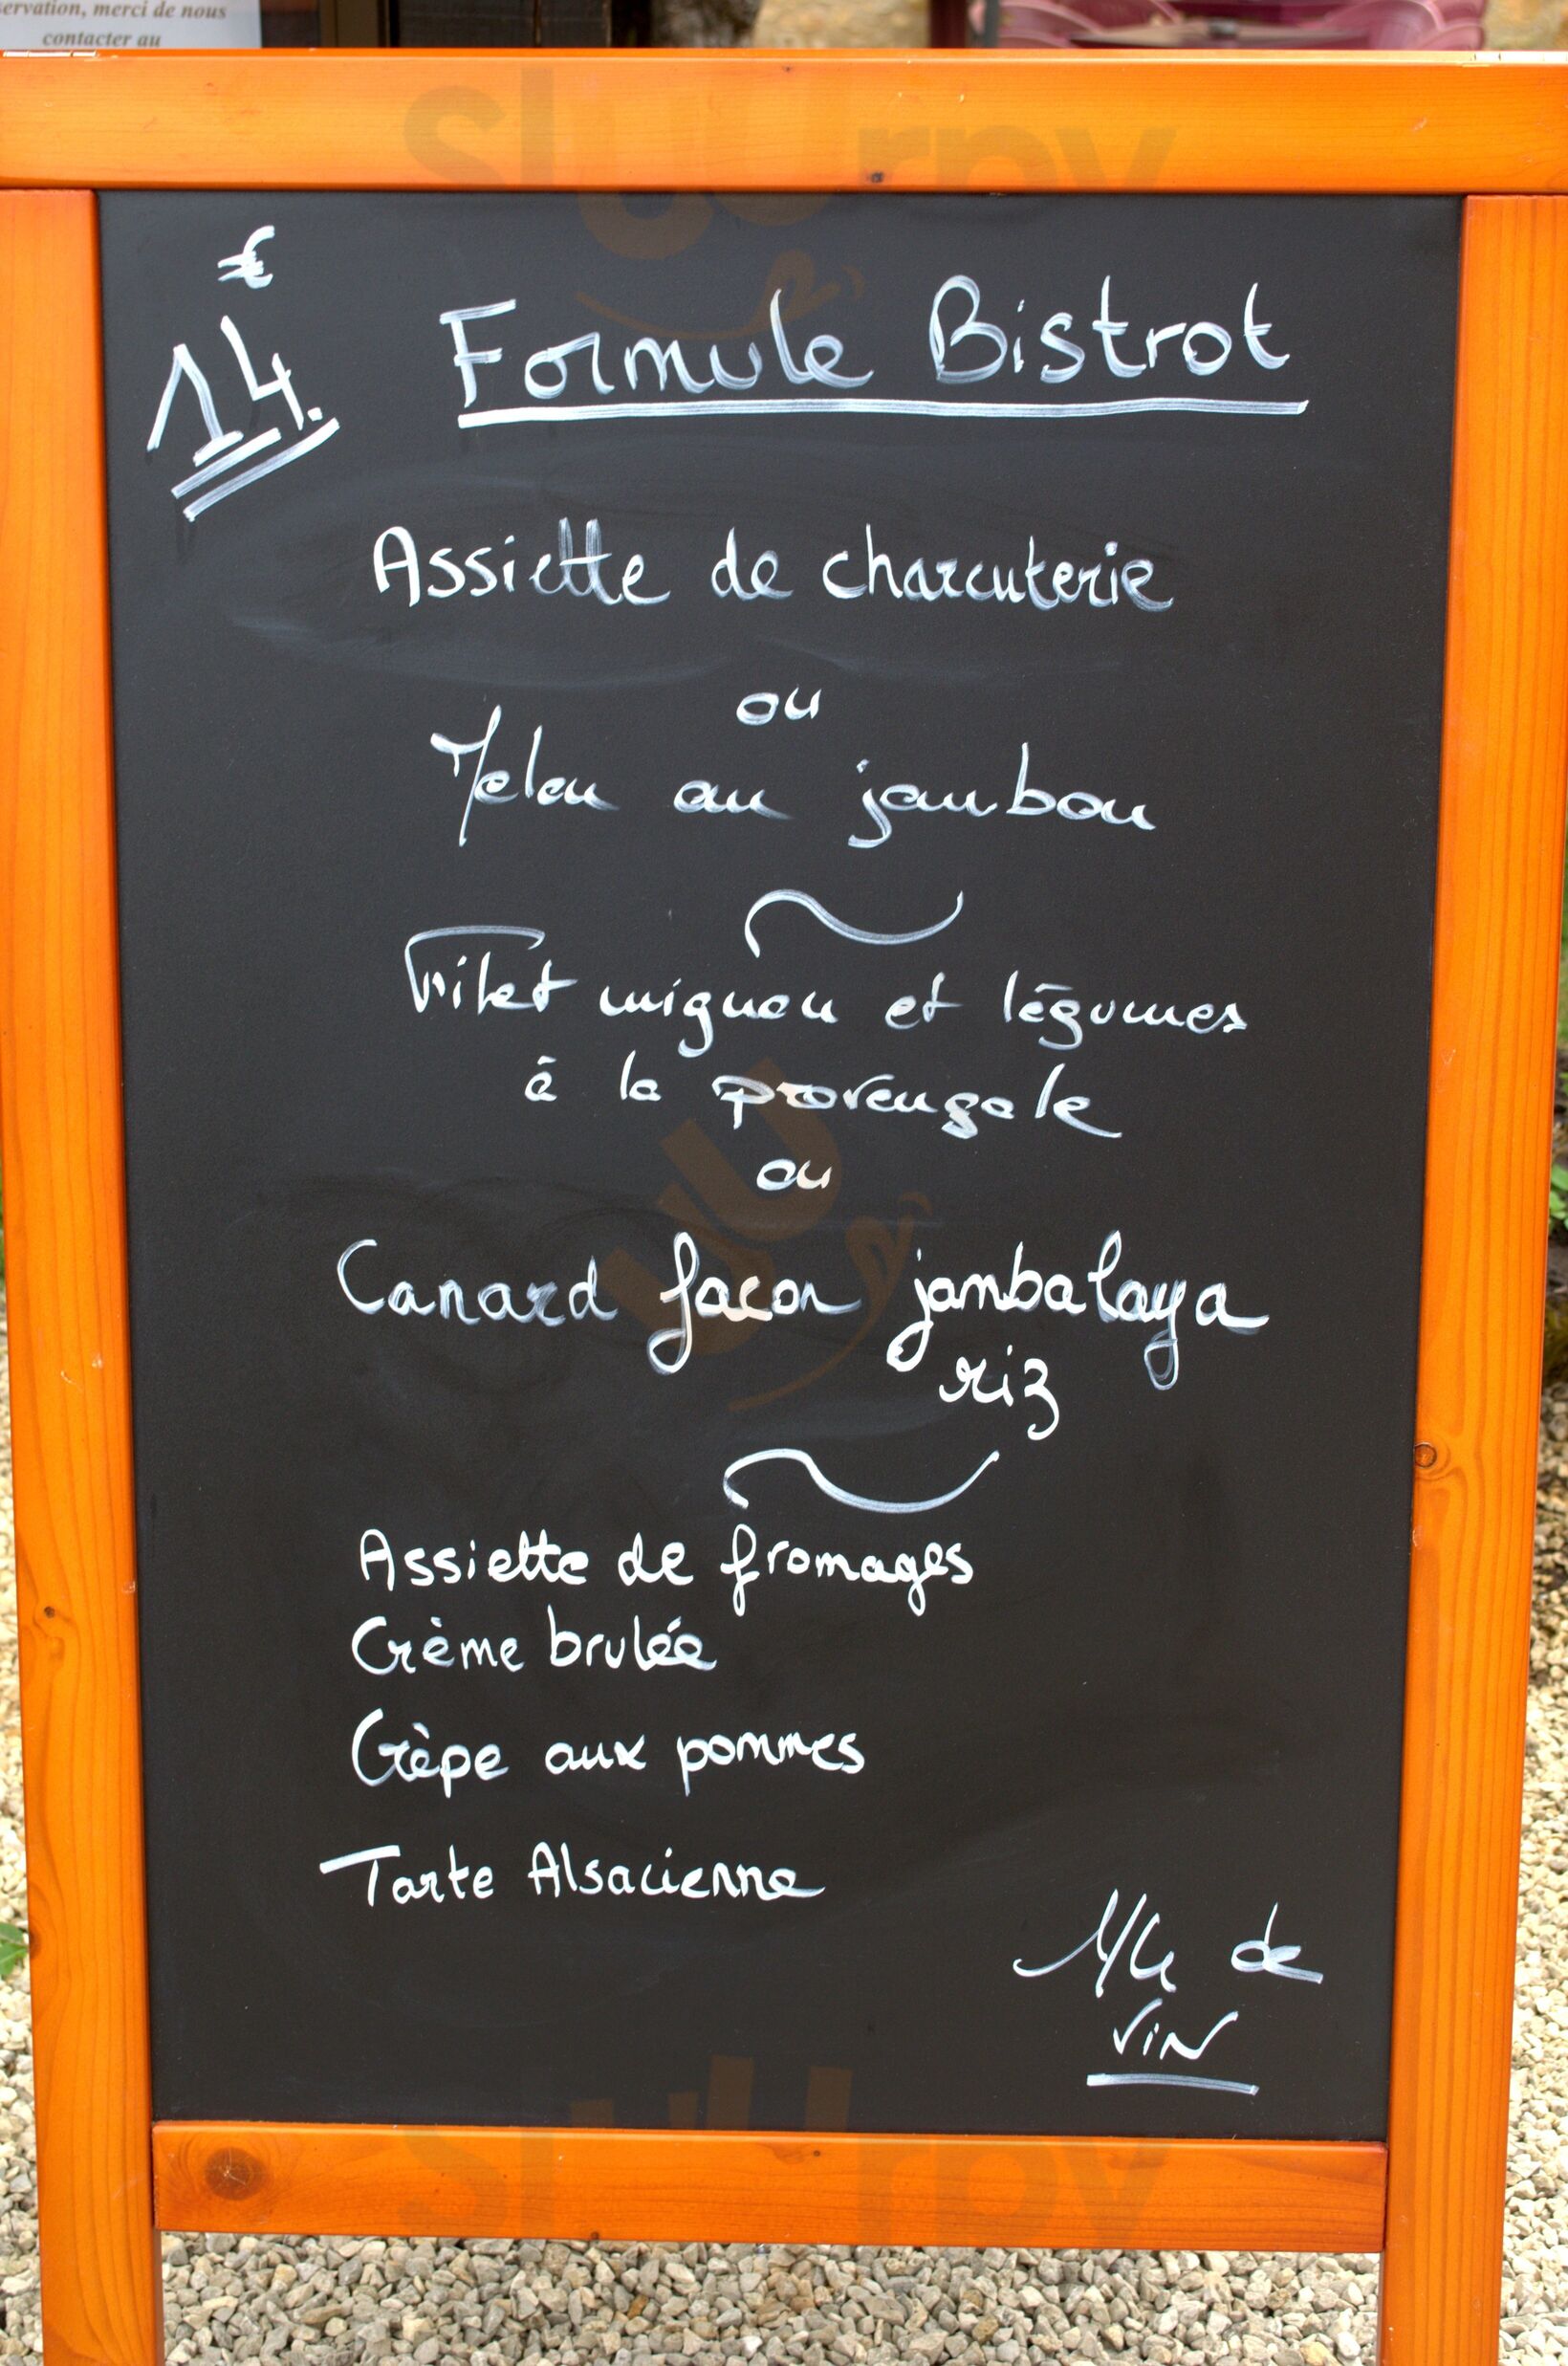 servation, merci de nous
contacter au
€
14.
Formule Bistrot
Assiette de charcuterie
ou
Melon au jambon
Filet mignon et légumes
à la provençale
ou
Canard facon jambalaya
riz
Assiette de fromages
Crème brulée
Crèpe aux pommes
Tarte Alsacienne
1/4 de
VIN
sluurpy
sluurpy